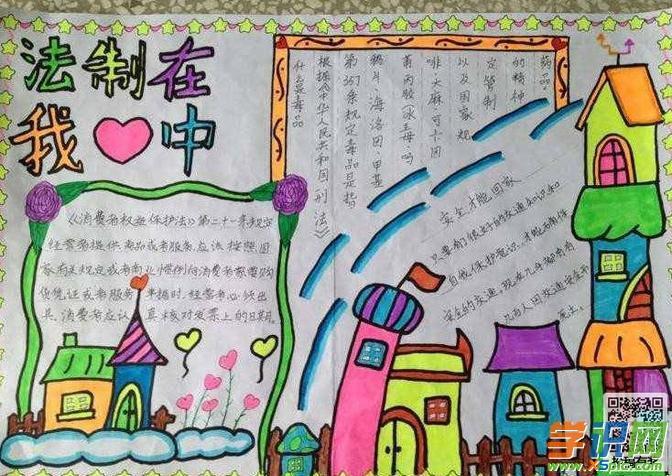 法制在
我中
《消费者权益保护法》第二十一条规定
经营者提供商品或者服务.应该按照国
家规定或者商业惯例向消费者购
货凭证或者服务单据时.经营者必须出
具.消费者应认真核对发票上的日期。
什么是毒品
根据《中华人民共和国刑法》
第357条规定毒品是指
鸦片、海洛因、甲基
苯丙胺(冰毒)、吗
啡、大麻、可卡因
以及国家规
定管制
的精神
药品。
安全才能回家
只要我们的交通知识和
自我保护意识.才能
安全的交通,现在几乎每
几百人因交通安全而
死亡。
学识网